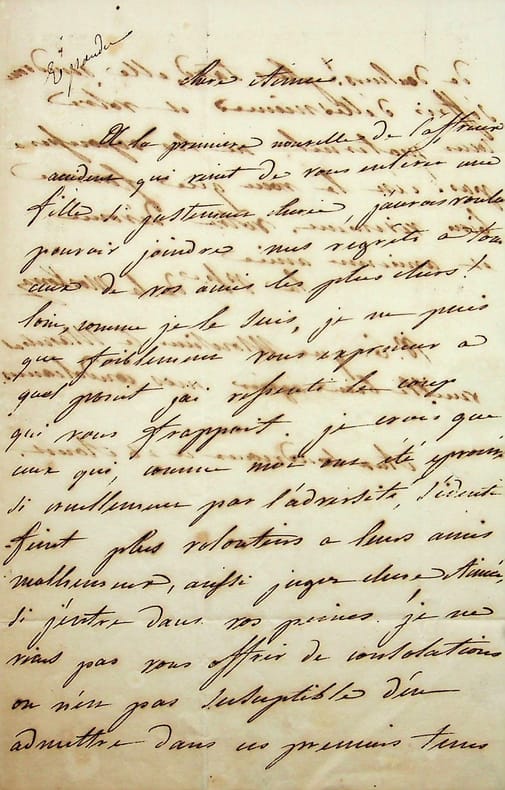 Répondu
chere Aimée
A la premiere nouvelle de l'affreux
accident qui vient de vous enlever une
fille si justement cherie j'aurois voulu
pouvoir joindre mes regrets a tous
ceux de vos amis les plus chers!
loin, comme je le suis, je ne puis
que foiblement vous exprimer a
quel point j'ai ressenti le coup
qui vous frappait. je crois que
ceux qui, comme moi ont été eprouvés
si cruellement par l'adversité, s'identi
fient plus volontiers a leurs amis
malheureux, aussi jugez chere Aimée,
si j'entre dans vos peines. je ne
viens pas vous offrir de consolations
on n'en pas susceptible d'en
admettre dans ces premiers tems